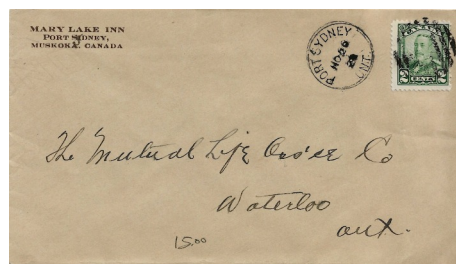 MARY LAKE INN
PORT SYDNEY,
MUSKOKA, CANADA
PORT SYDNEY
NO 26
29
ONT
2 CENTS 2
The Mutual Life Co
Waterloo
Ont.
15.00